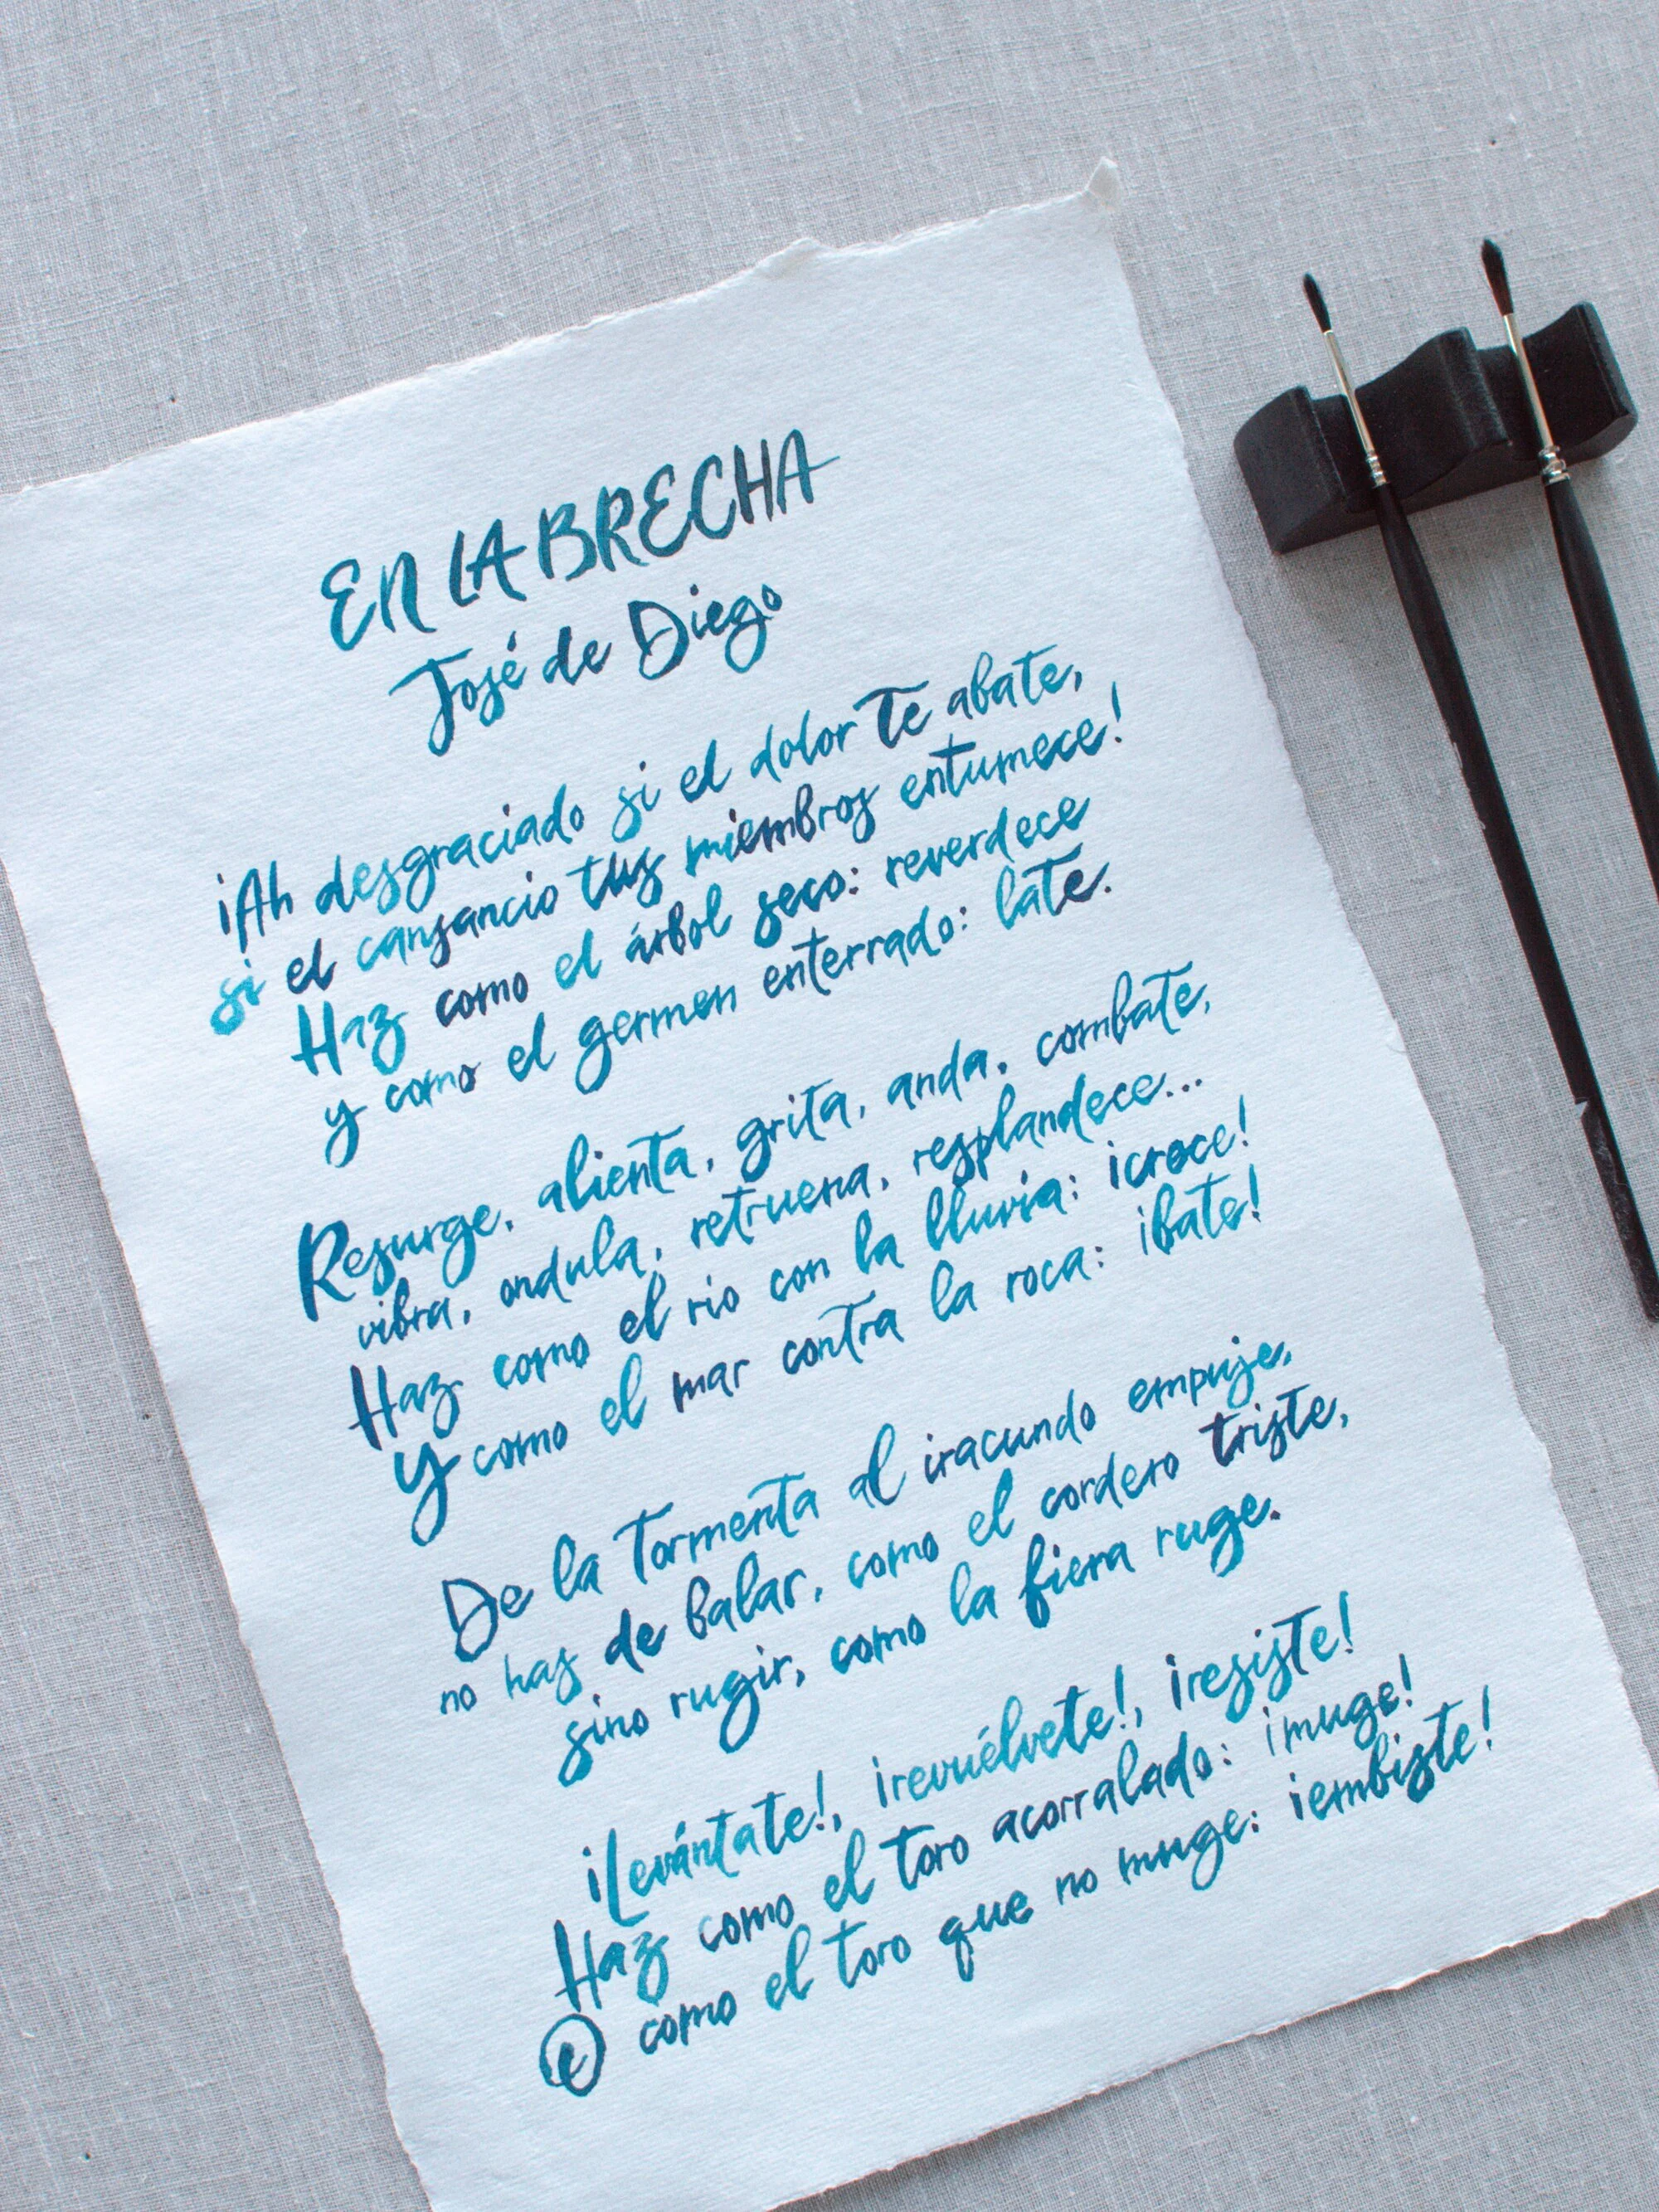 EN LA BRECHA
José de Diego
¡Ah desgraciado si el dolor te abate,
si el cansancio tus miembros entumece!
Haz como el árbol seco: reverdece
y como el germen enterrado: late.
Resurge, alienta, grita, anda, combate,
vibra, ondula, retruena, resplandece...
Haz como el río con la lluvia: ¡crece!
Y como el mar contra la roca: ¡bate!
De la tormenta al iracundo empuje,
no has de balar, como el cordero triste,
sino rugir, como la fiera ruge.
¡Levántate!, ¡revuélvete!, ¡resiste!
Haz como el toro acorralado: ¡muge!
O como el toro que no muge: ¡embiste!